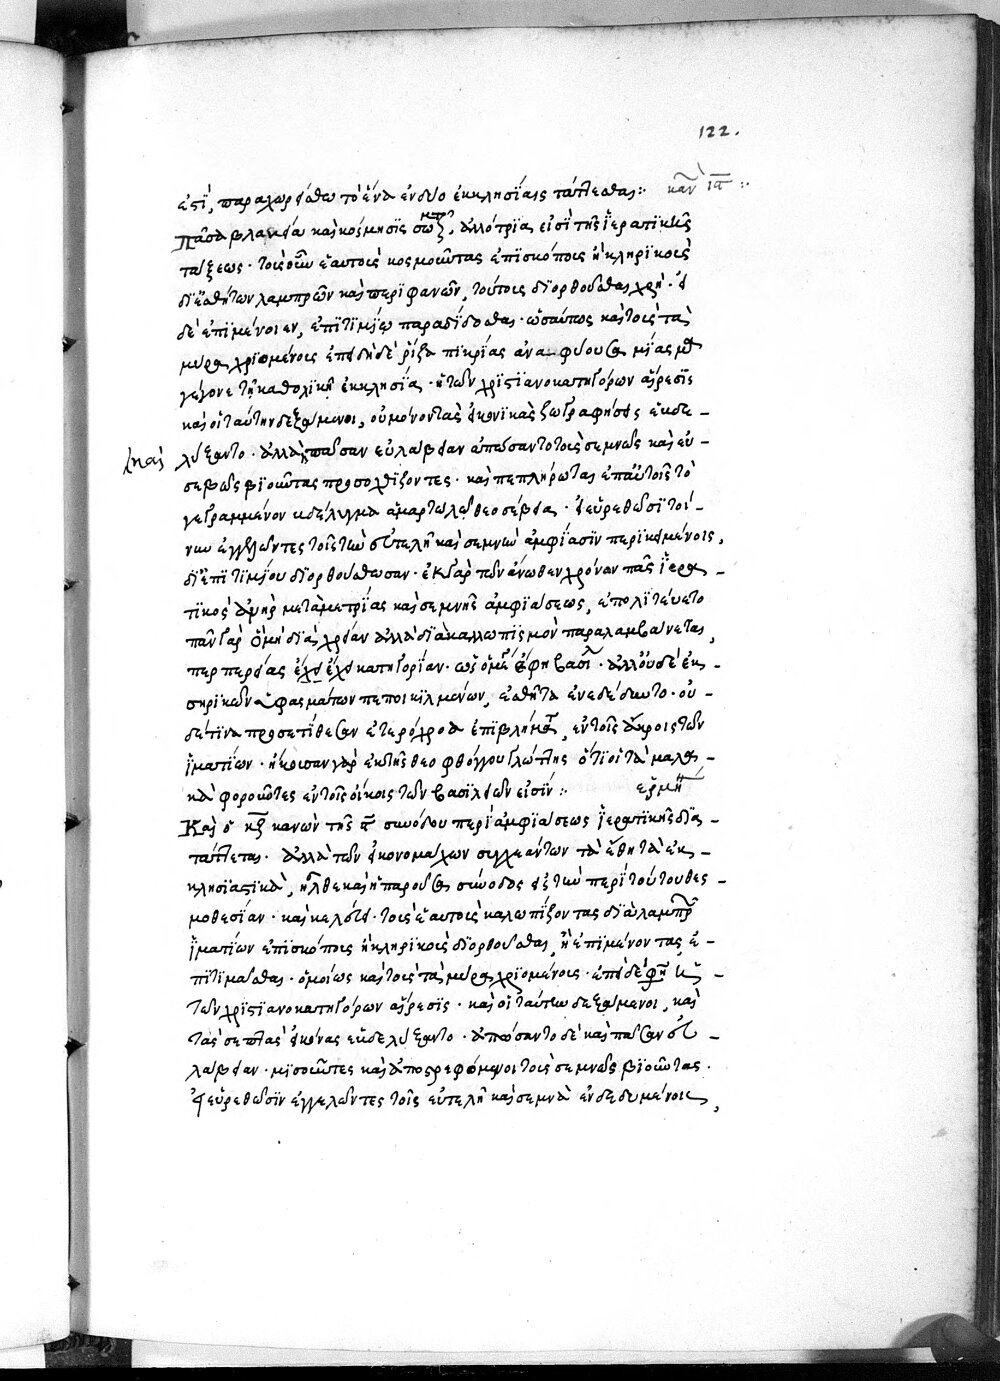 122.
ἐστὶ, παραχωρείσθω τὸ ἕνα ἐν δύο ἐκκλησίαις τάττεσθαι: κανὼν ις:
Πᾶσα βλακεία καὶ κόσμησις σωματικὴ, ἀλλότρια εἰσὶ τῆς ἱερατικῆς
τάξεως· τοὺς οὖν ἑαυτοὺς κοσμοῦντας ἐπισκόπους ἢ κληρικοὺς
δι' ἐσθήτων λαμπρῶν καὶ περιφανῶν, τούτους διορθοῦσθαι χρή· εἰ
δὲ ἐπιμένοιεν, ἐπιτιμίω παραδίδοσθαι· ὡσαύτως καὶ τοὺς τὰ
μύρα χριομένους ἐπειδὴ δὲ ῥίζα πικρίας ἄνω φύουσα μίασμα
γέγονε τῆ καθολικῆ ἐκκλησία· ἡ τῶν χριστιανοκατηγόρων αἵρεσις
καὶ οἱ ταύτην δεξάμενοι, οὐ μόνον τὰς εἰκονικὰς ζωγραφήσεις ἐβδε-
καὶ λύξαντο· ἀλλὰ πᾶσαν εὐλάβειαν ἀπώσαντο τοὺς σεμνῶς καὶ εὐ-
σεβῶς βιοῦντας προσοχθίζοντες· καὶ πεπλήρωται ἐπ' αὐτοῖς τὸ
γεγραμμένον βδέλυγμα ἁμαρτωλῶ θεοσέβεια· εἰ εὑρεθῶσι τοί-
νυν ἐγγελῶντες τοῖς τὴν εὐτελῆ καὶ σεμνὴν ἀμφίασιν περικειμένοις,
δι' ἐπιτιμίου διορθούσθωσαν· ἐκ γὰρ τῶν ἄνωθεν χρόνων πᾶς ἱερα-
τικὸς ἀνὴρ μετὰ μετρίας καὶ σεμνῆς ἀμφιάσεως, ἐπολιτεύετο
πᾶν γὰρ ὃ μὴ διὰ χρείαν ἀλλὰ διὰ καλλωπισμὸν παραλαμβάνεται,
περπερείας ἔχει ἔχει κατηγορίαν· ὡς ὁ μέγας ἔφη βασίλειος· ἀλλ' οὐδὲ ἐκ
σηρικῶν ὑφασμάτων πεποικιλμένων, ἐσθῆτα ἐνεδέδυντο· οὐ-
δέ τινα προσετίθεσαν ἑτερόχροα ἐπιβλήματα, ἐν τοῖς ἄκροις τῶν
ἱματίων· ἤκουσαν γὰρ ἐκ τῆς θεοφθόγγου γλώττης ὅτι οἱ τὰ μαλα-
κὰ φοροῦντες ἐν τοῖς οἴκοις τῶν βασιλείων εἰσίν: ἑρμη
Καὶ ὁ κζ κανὼν τῆς ϛ συνόδου περὶ ἀμφιάσεως ἱερατικῆς δια-
τάττεται· ἀλλὰ τῶν εἰκονομάχων συγχεάντων τὰ ἔθη τὰ ἐκ-
κλησιαστικὰ, ἦλθε καὶ ἡ παροῦσα σύνοδος εἰς τὴν περὶ τούτου θεσ-
μοθεσίαν· καὶ κελεύει· τοὺς ἑαυτοὺς καλωπίζοντας διὰ λαμπρῶν
ἱματίων ἐπισκόπους ἢ κληρικοὺς διορθοῦσθαι, ἢ ἐπιμένοντας, ἐ-
πιτιμᾶσθαι· ὁμοίως καὶ τοὺς τὰ μύρα χριομένους· ἐπεὶ δέ φησι ἡ
τῶν χριστιανοκατηγόρων αἵρεσις· καὶ οἱ ταύτην δεξάμενοι, καὶ
τὰς σεπτὰς εἰκόνας ἐβδελύξαντο· ἀπώσαντο δὲ καὶ πᾶσαν εὐ-
λάβειαν· μισοῦντες καὶ ἀποστρεφόμενοι τοὺς σεμνῶς βιοῦντας·
εἰ εὑρεθῶσιν ἐγγελῶντες τοῖς εὐτελῆ καὶ σεμνὰ ἐνδεδυμένοις,